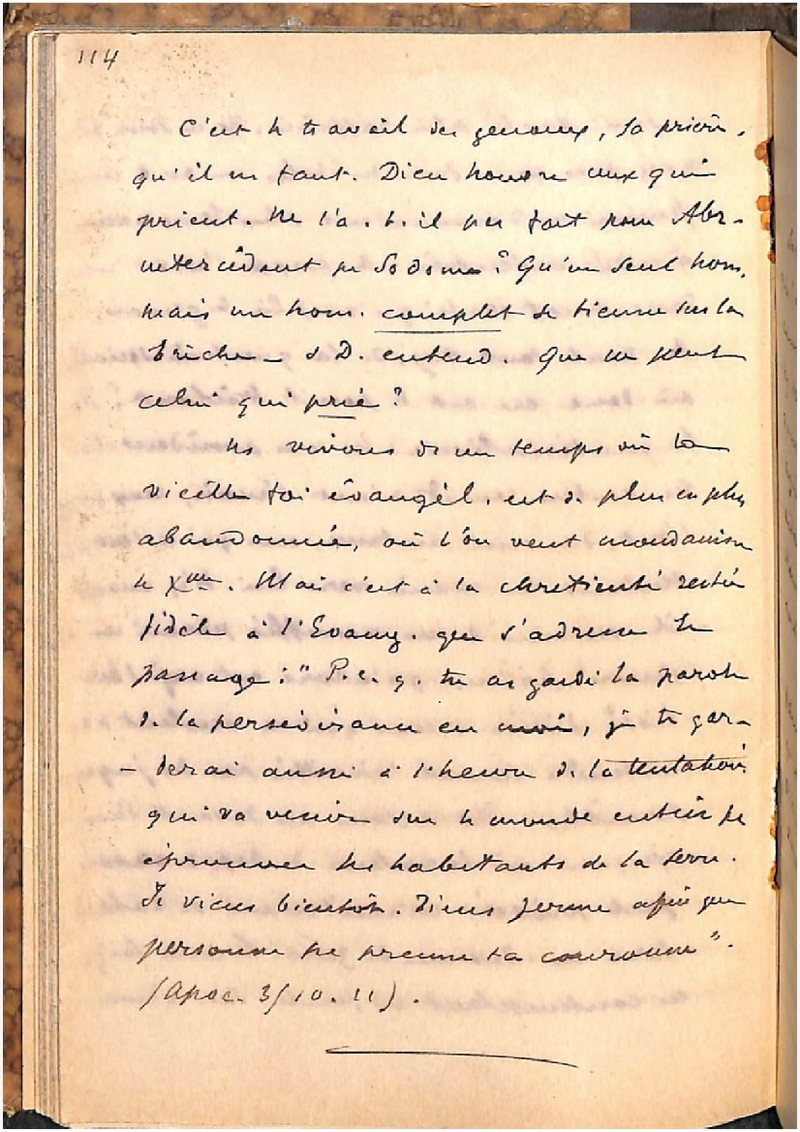 114
C'est le travail des genoux, la prière,
qu'il ns faut. Dieu honore ceux qui
prient. Ne l'a-t-il pas fait pour Abr-
intercédant pr Sodome? Qu'un seul hom.
mais un hom. complet se tienne sur la
brèche _ & D. entend. Que ne peut
celui qui prie?
Ns vivons ds un temps où la
vieille foi évangél. est de plus en plus
abandonnée, où l'on veut mondaniser
le Xme. Mais c'est à la chrétienté restée
fidèle à l'Evang. que s'adresse le
passage: "P. c. q. tu as gardé la parole
de la persévérance en moi, je te gar-
- derai aussi à l'heure de la tentation
qui va venir sur le monde entier pr
éprouver les habitants de la terre.
Je viens bientôt. Tiens ferme afin que
personne ne prenne ta couronne".
(Apoc. 3/10.11).